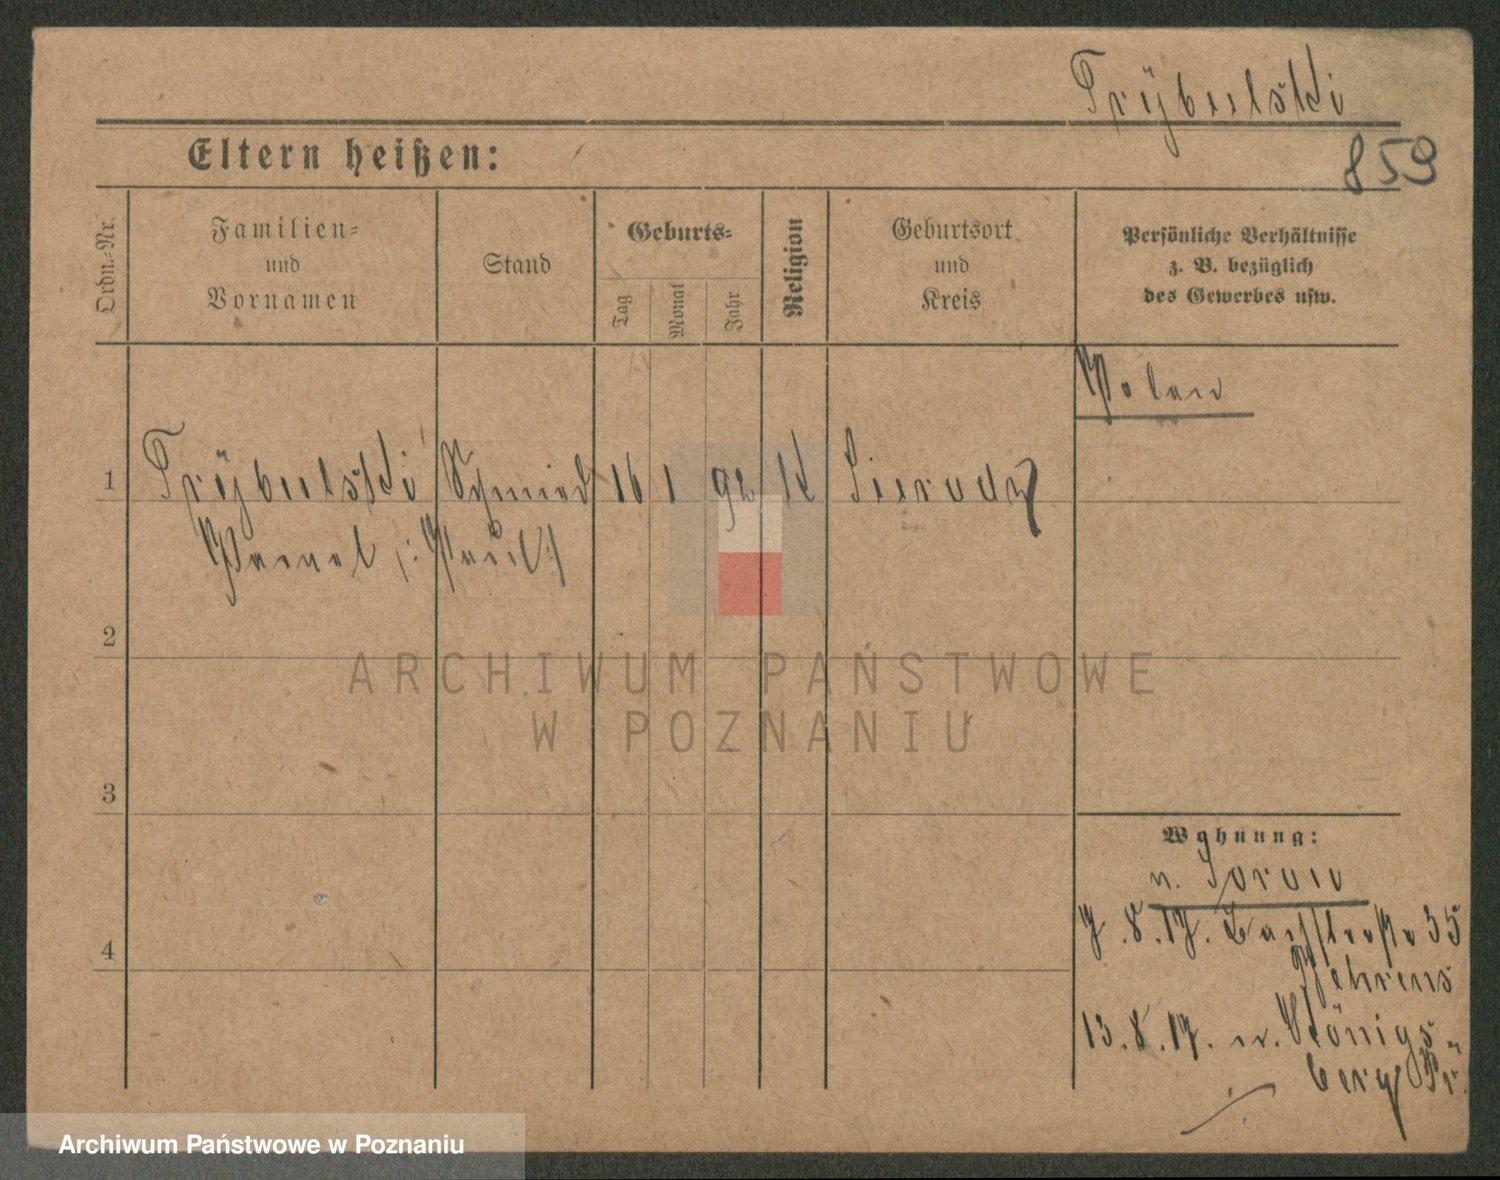 Trÿbulski
859
Eltern heißen:
Ordn.-Nr.
Familien-
und
Vornamen
Stand
Geburts-
Tag
Monat
Jahr
Religion
Geburtsort
und
Kreis
Persönliche Verhältnisse
z. B. bezüglich
des Gewerbes usw.
Polen
1 Trÿbulski Schmied 16 1 92 K Sieradz
Pawel (: Paul :)
2
3
4
Wohnung:
v. Sorau
7.8.17. 35
Behrens
13.8.17. n. Königs-
berg Pr.
ARCHIWUM PAŃSTWOWE
W POZNANIU
Archiwum Państwowe w Poznaniu